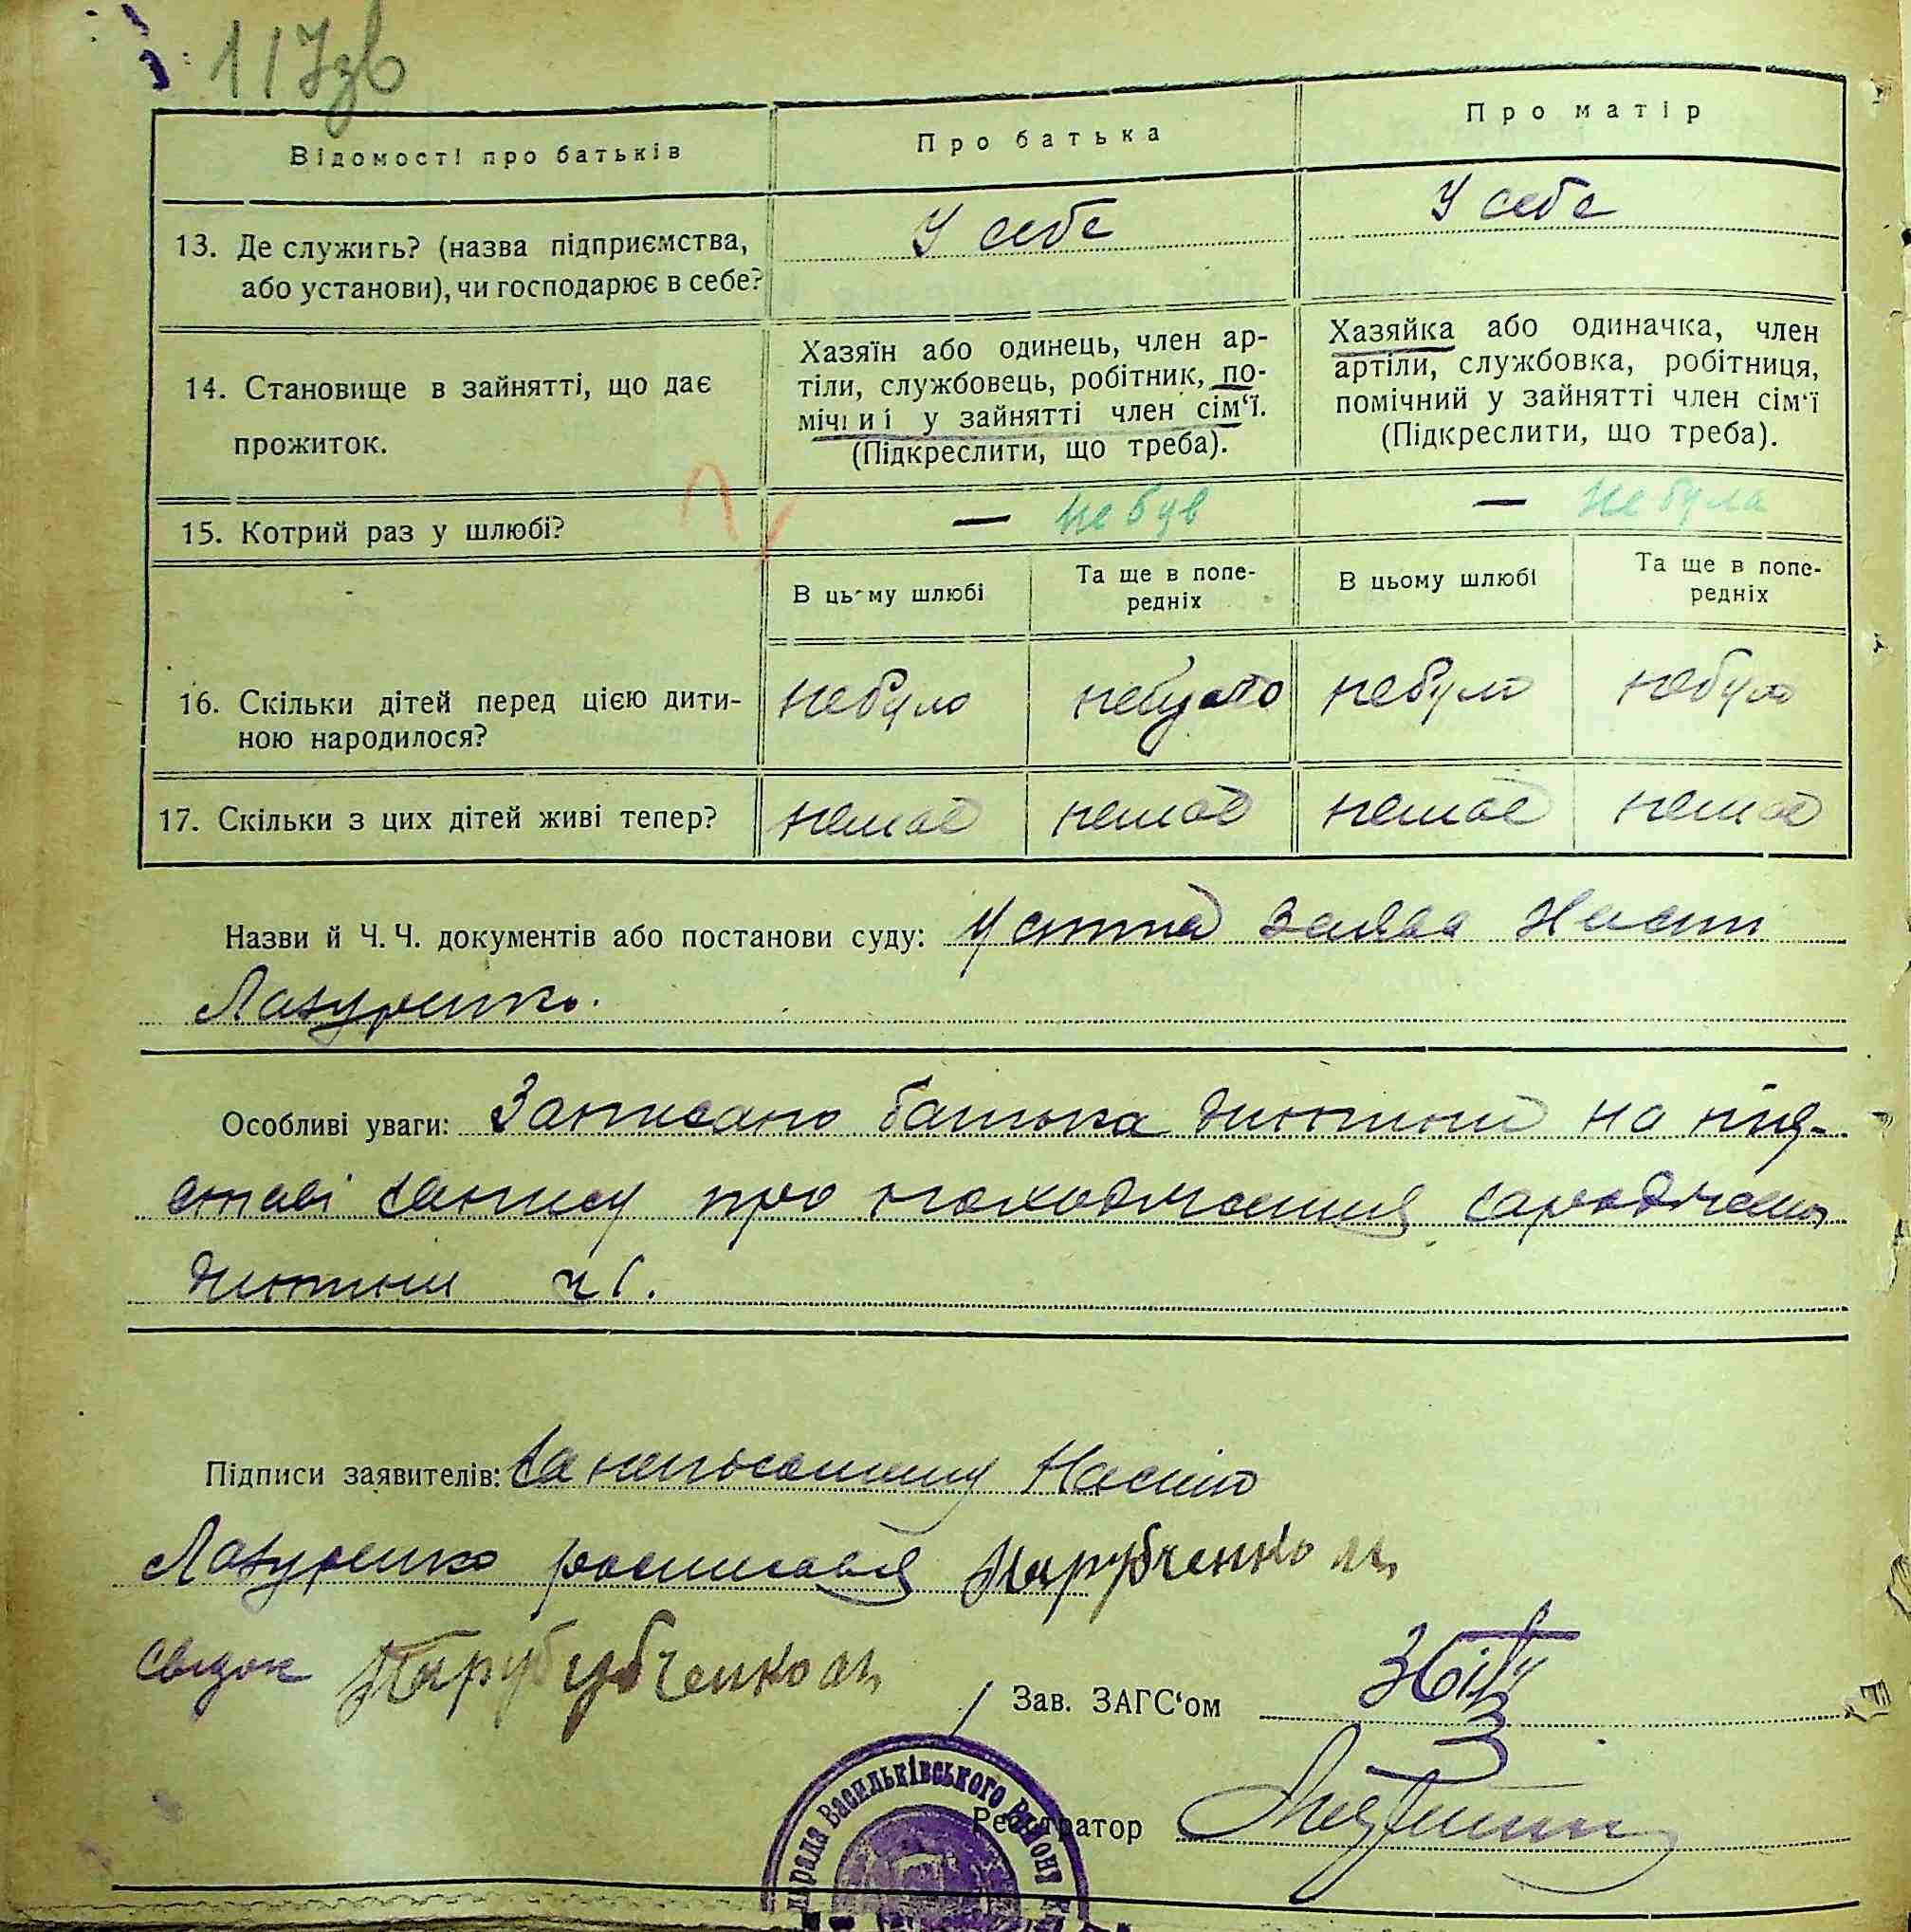 117зв
Відомості про батьків
Про батька
Про матір
13. Де служить? (назва підприємства,
або установи), чи господарює в себе?
У себе
У себе
14. Становище в зайнятті, що дає
прожиток.
Хазяїн або одинець, член ар-
тіли, службовець, робітник, по-
мічниі у зайнятті член сім‘ї.
(Підкреслити, що треба).
Хазяйка або одиначка, член
артіли, службовка, робітниця,
помічний у зайнятті член сім‘ї
(Підкреслити, що треба).
15. Котрий раз у шлюбі?
— не був
— не була
В цьму шлюбі
Та ще в попе-
редніх
В цьому шлюбі
Та ще в попе-
редніх
16. Скільки дітей перед цією дити-
ною народилося?
небуло
небуло
небуло
небуло
17. Скільки з цих дітей живі тепер?
немає
немає
немає
немає
Назви й Ч. Ч. документів або постанови суду: Устна заява Насті
Лазуренко.
Особливі уваги: Записано батька дитини на під-
ставі запису про походження зародженої
дитини
Підписи заявителів: За неписьменну Настю
Лазуренко росписався Парубченко
свідок
Зав. ЗАГС‘ом
Реєстратор
рада Васильківського Району